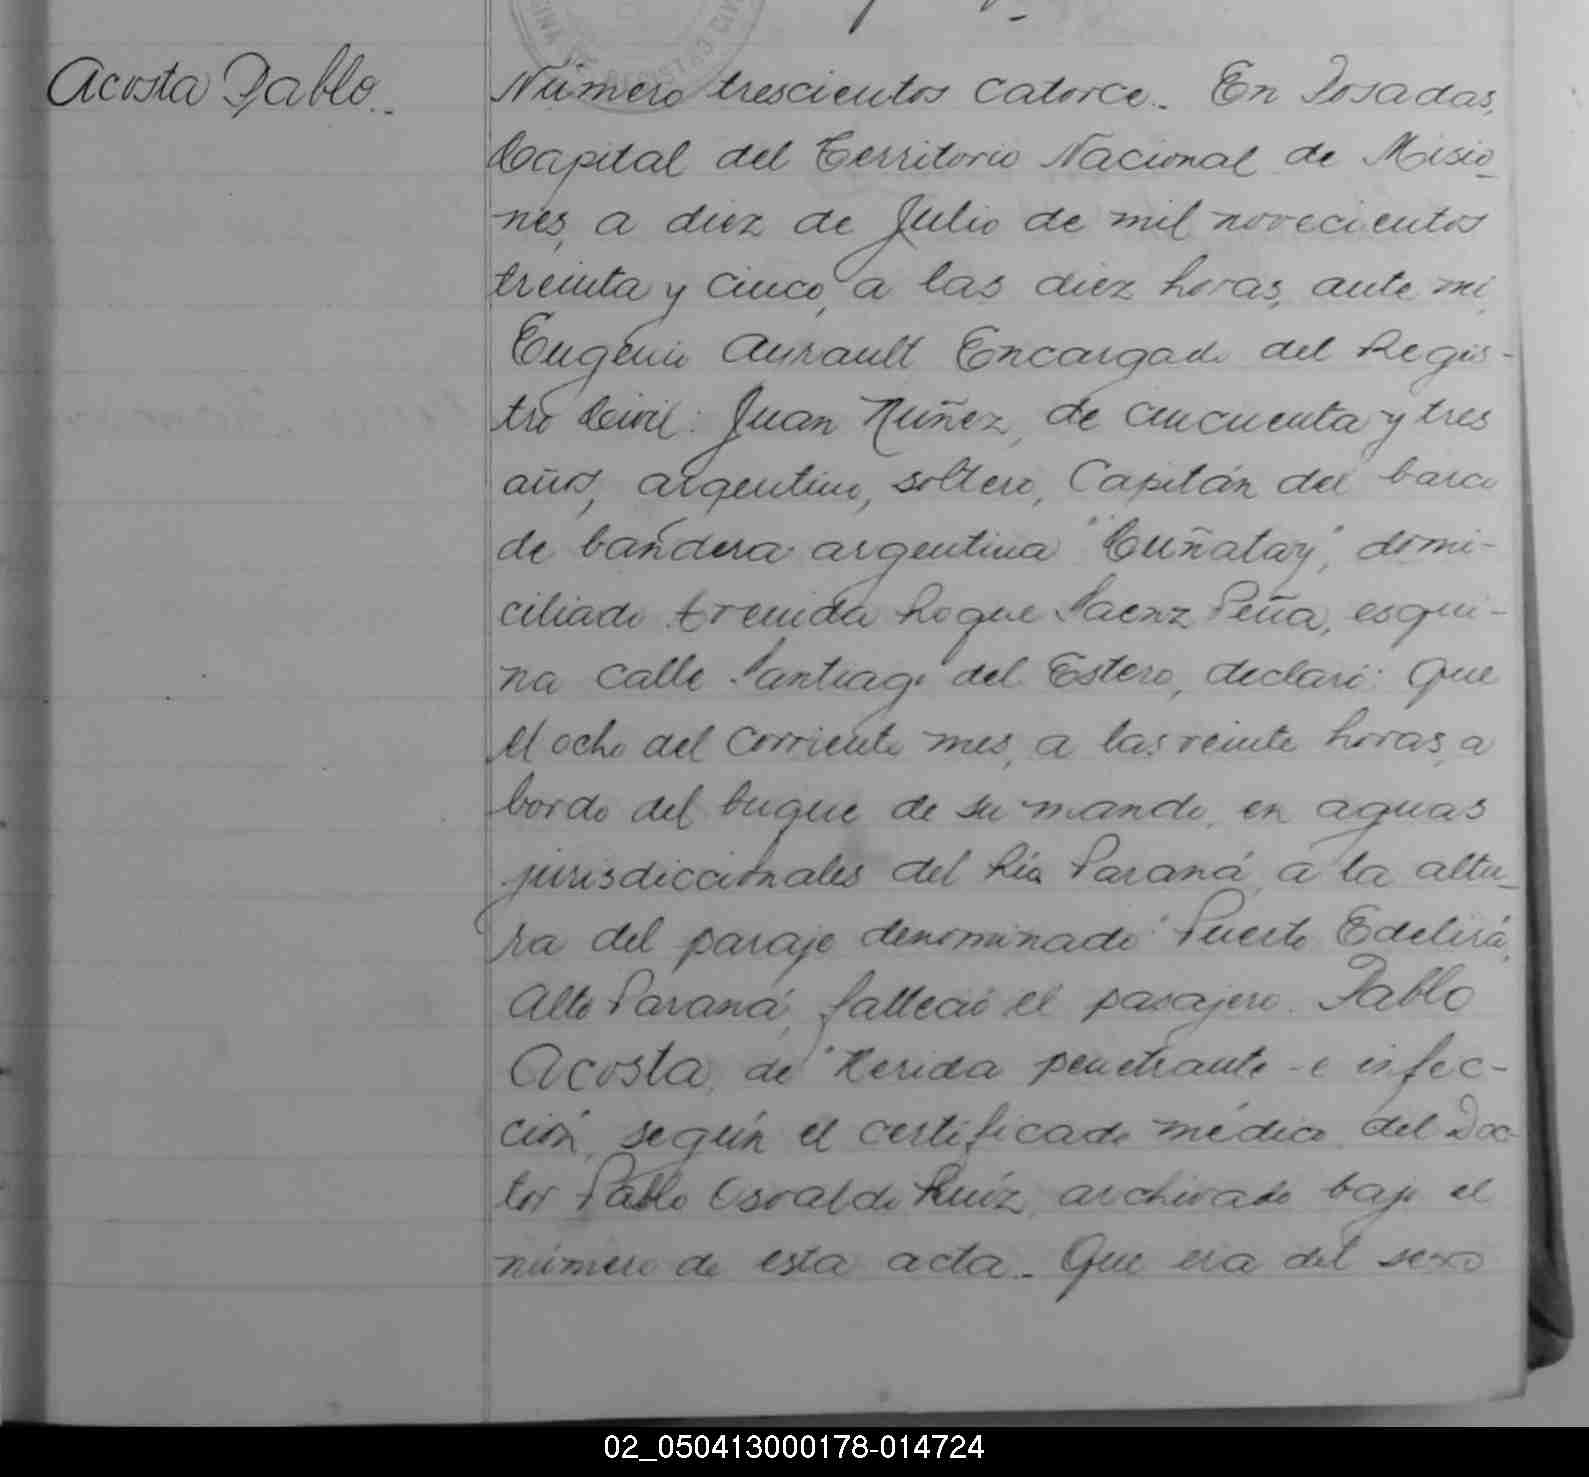 Acosta Pablo.-
Número trescientos catorce.- En Posadas,
Capital del Territorio Nacional de Misio-
nes, a diez de Julio de mil novecientos
treinta y cinco, a las diez horas, ante mi,
Eugenio Ayrault Encargado del Regis-
tro Civil: Juan Núñez, de cincuenta y tres
años, argentino, soltero, Capitán del barco
de bandera argentina "Cuñatay", domi-
ciliado Avenida Roque Saenz Peña, esqui-
na calle Santiago del Estero, declaró: Que
el ocho del corriente mes, a las veinte horas, a
bordo del buque de su mando, en aguas
jurisdiccionales del Río Paraná a la altu-
ra del paraje denominado "Puerto Edelira",
Alto Paraná, falleció el pasajero Pablo
Acosta, de "Herida penetrante e infec-
ción", según el certificado médico del Doc-
tor Pablo Osvaldo Ruíz, archivado bajo el
número de esta acta.- Que era del sexo
02_050413000178-014724